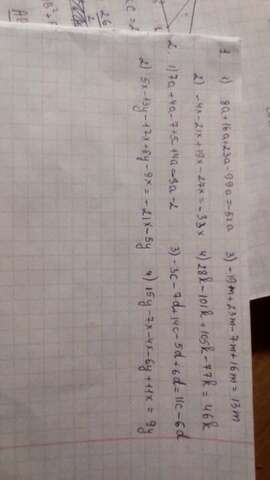 1
1) 8a+16a+23a-99a=-52a
2) -4x-21x+19x-27x=-33x
3) -19m+23m-7m+16m=13m
4) 28k-101k+105k-77k=46k
2
1) 7a+4a-7+5+14a-9a-2
2) 5x-13y-17x+8y-9x=-21x-5y
3) -3c-7d+14c-5d+6d=11c-6d
4) 15y-7x-4x-6y+11x=9y